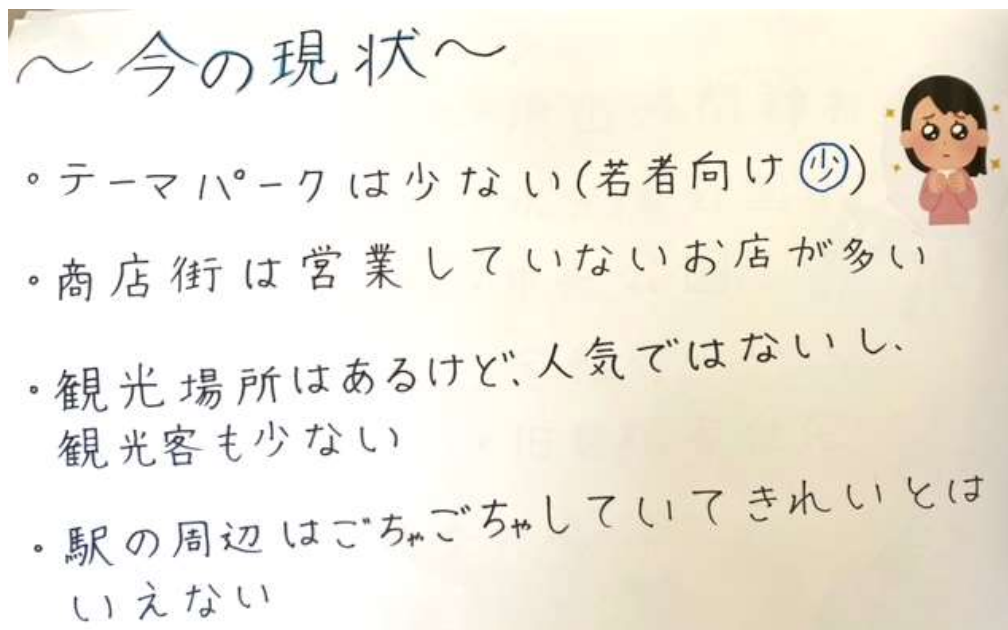 ～今の現状～
・テーマパークは少ない(若者向け少)
・商店街は営業していないお店が多い
・観光場所はあるけど、人気ではないし、
観光客も少ない
・駅の周辺はごちゃごちゃしていてきれいとは
いえない